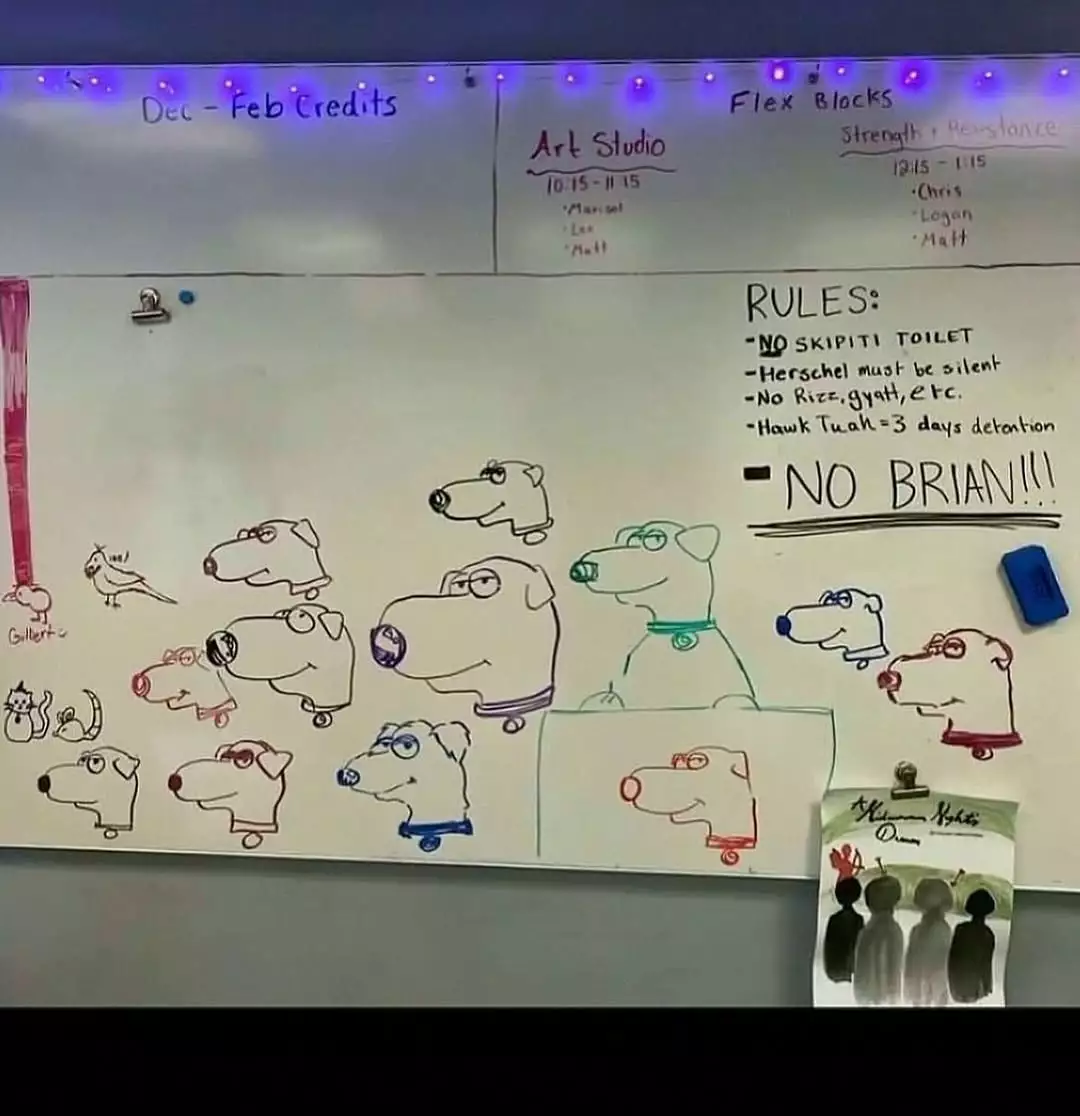 Dec - Feb Credits
Flex Blocks
Art Studio
10:15-11:15
•Marisol
•Leo
•Matt
Strength + Resistance
12:15 - 1:15
•Chris
•Logan
•Matt
RULES:
-NO SKIPITI TOILET
-Herschel must be silent
-No Rizz, gyatt, etc.
-Hawk Tuah = 3 days detention
- NO BRIAN!!!
Gilbert
A Midsummer Nights
Dream